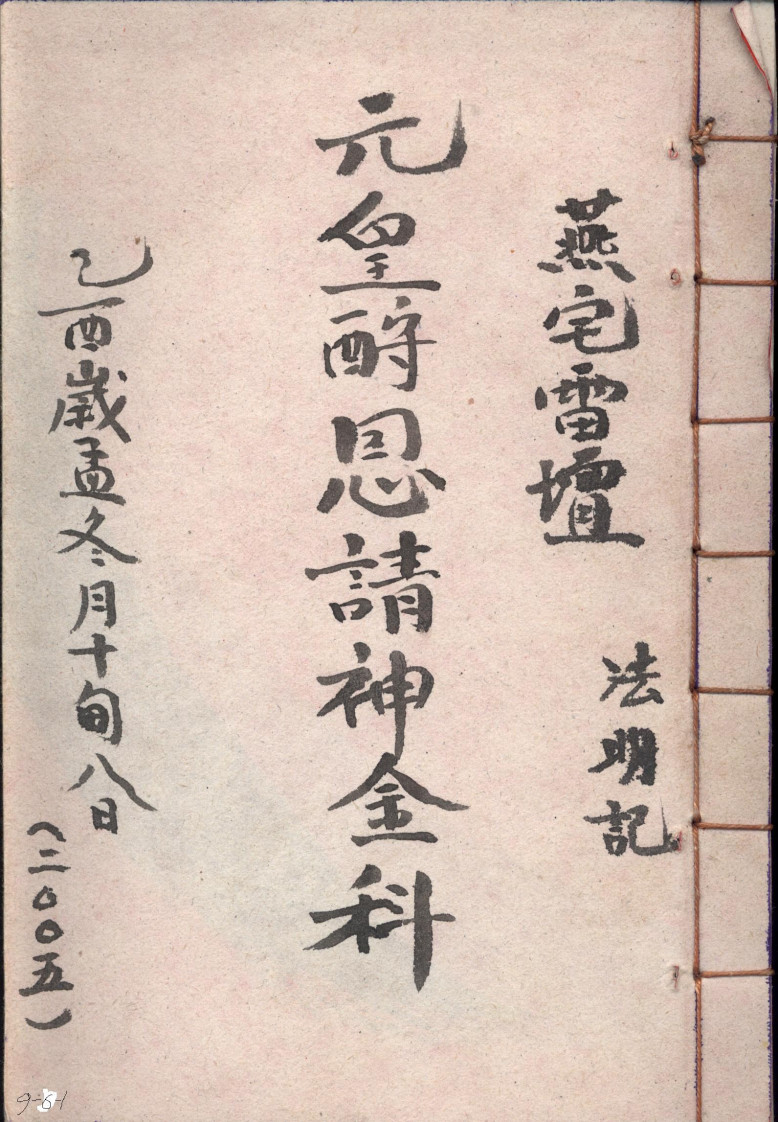 燕宅雷壇
法明記
元皇酧恩請神金科
乙酉歲孟冬月十旬八日
(二00五)